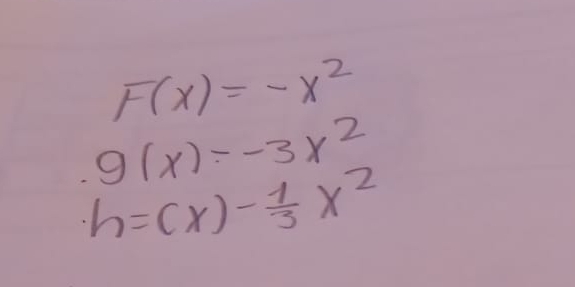 F(x) = -x²
.g(x) = -3x²
.h=(x) - 1/3 x²